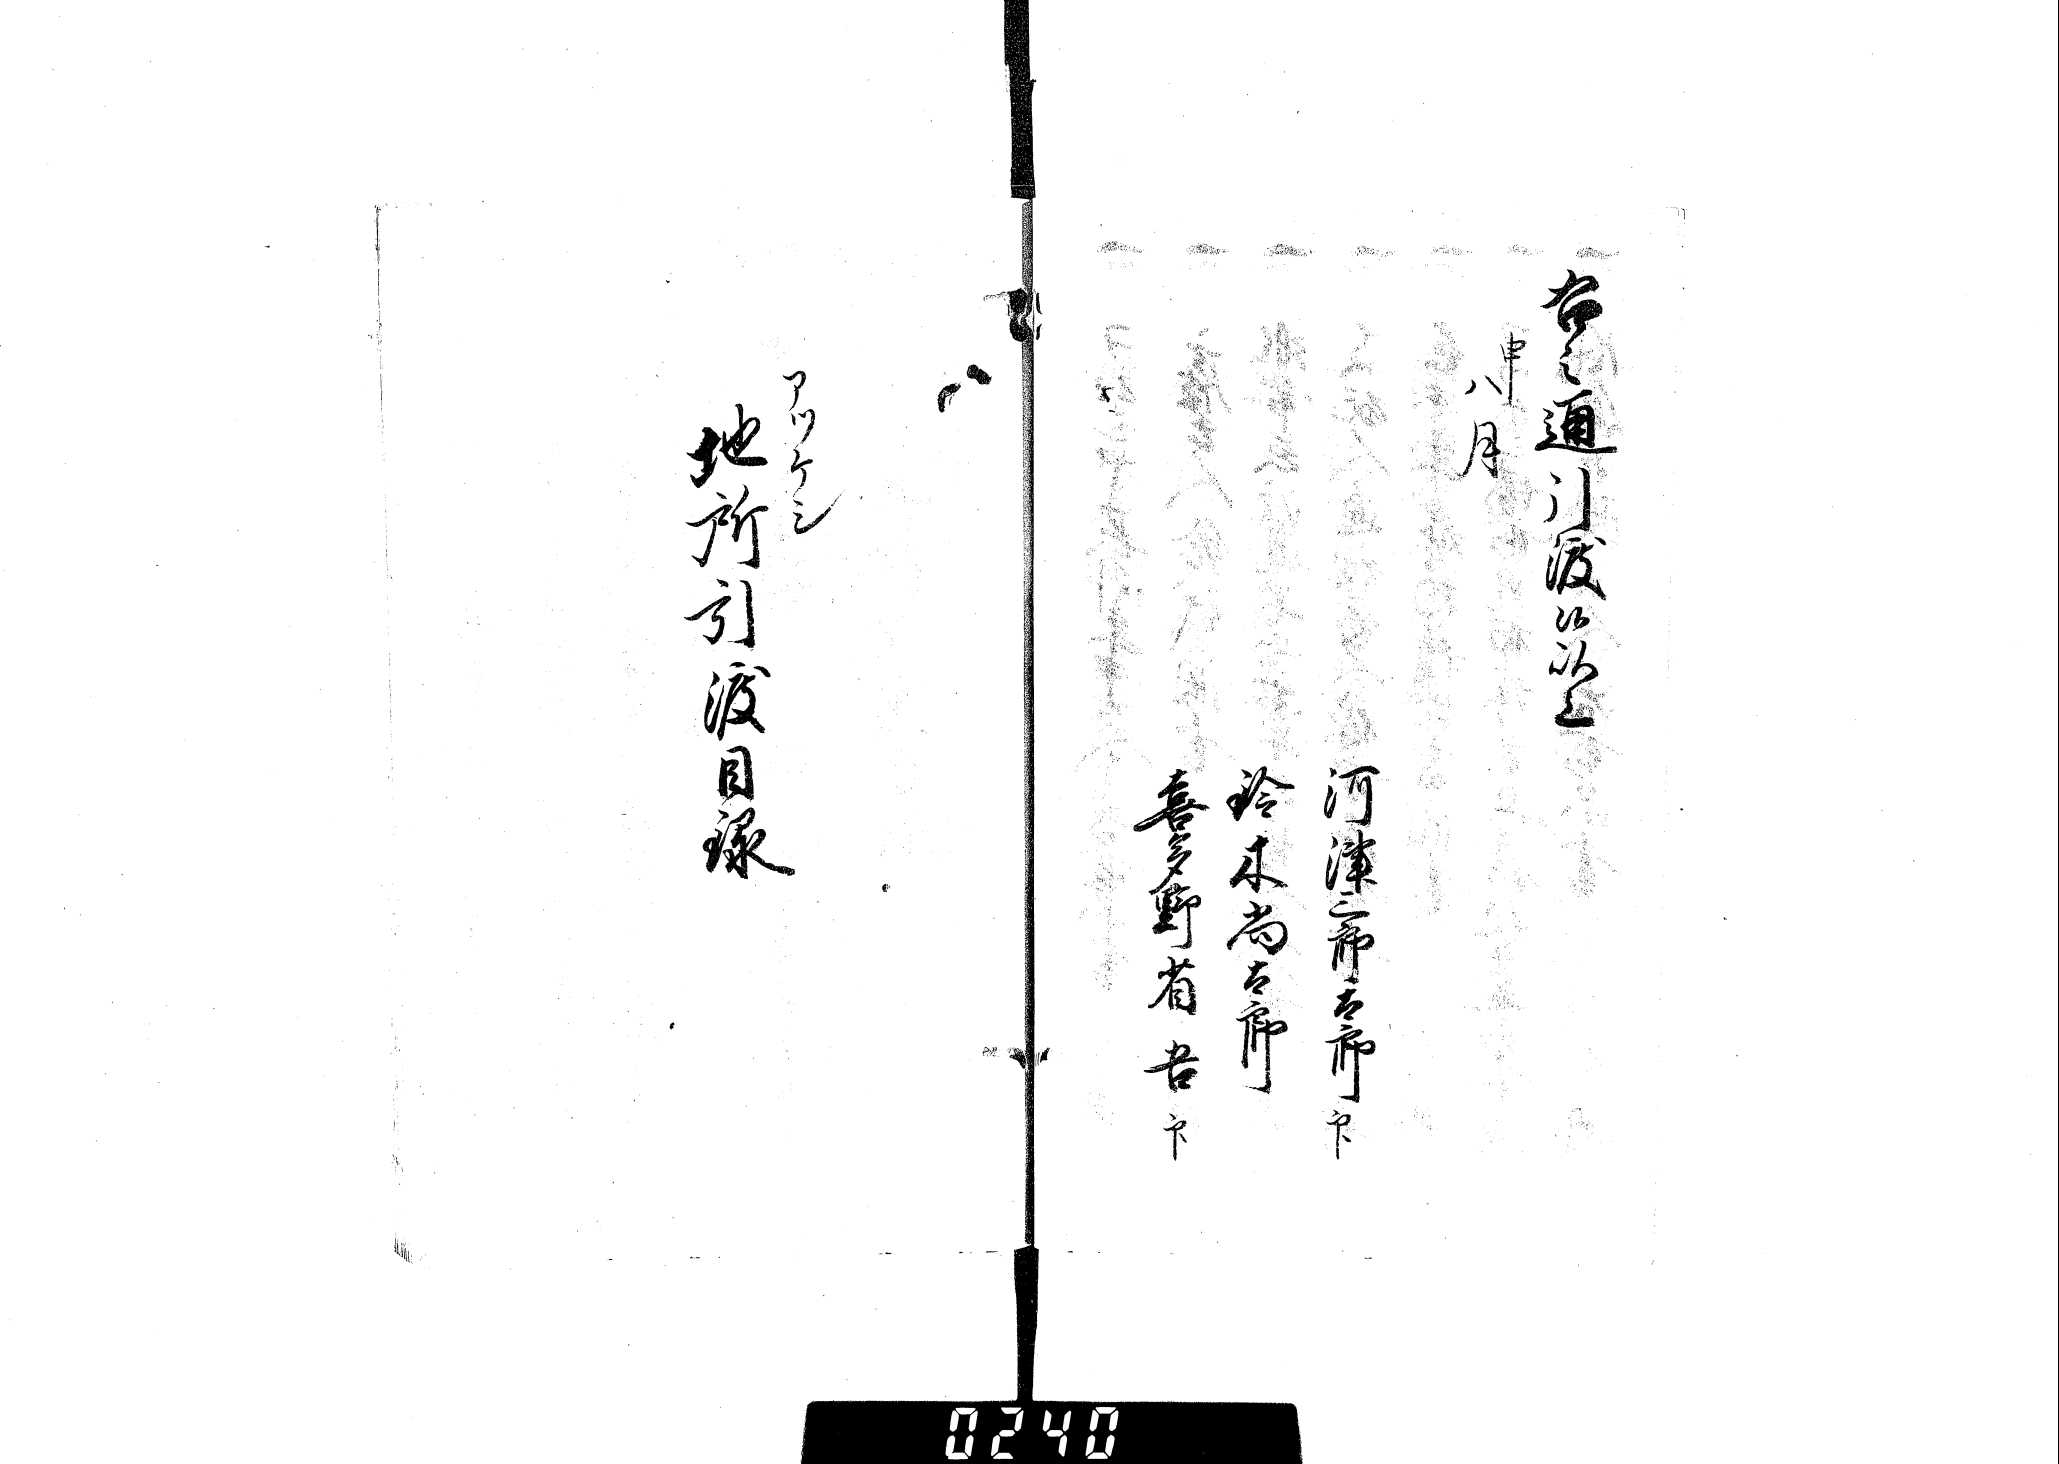 右之通引渡候以上
申八月
河津三郎太郎印
鈴木尚太郎
喜多野省吾印
アツケシ
地所引渡目録
0240